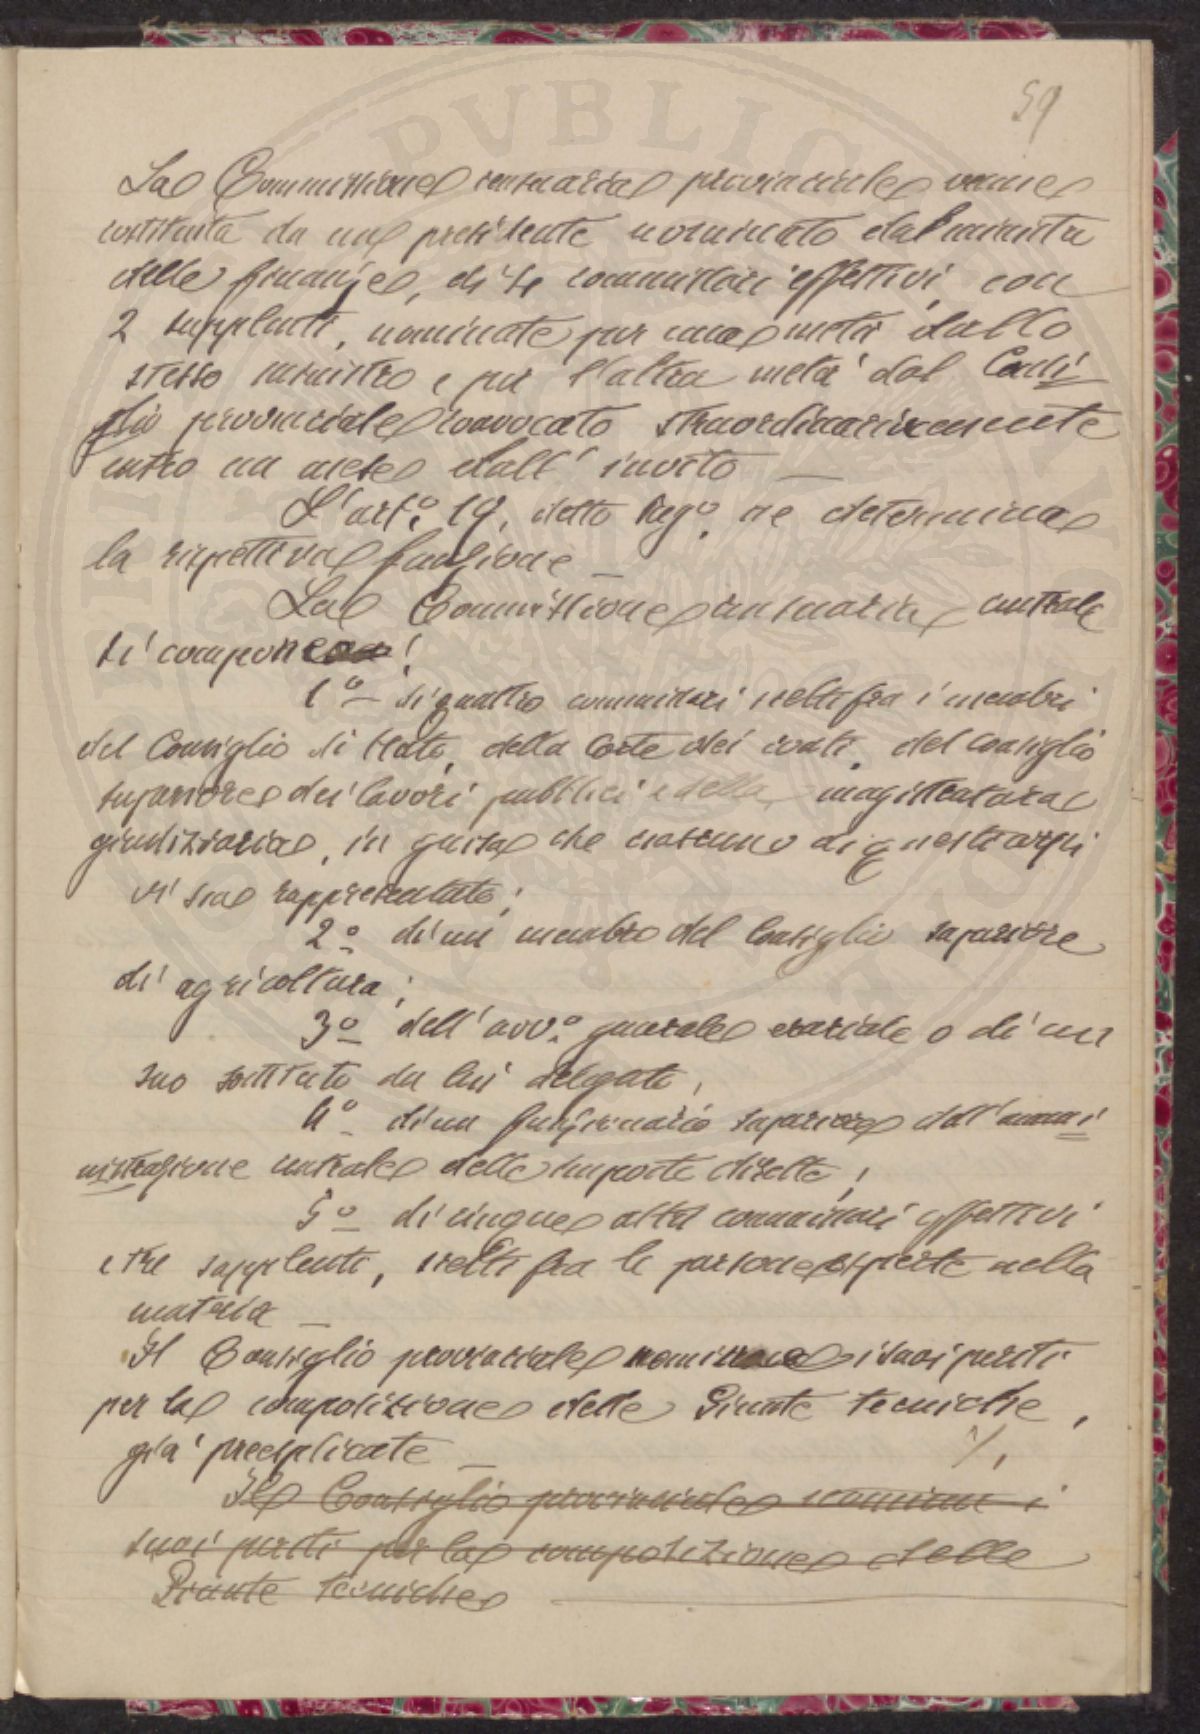 59
La Commissione censuaria provinciale venne
costituita da un presidente nominato dal ministro
delle finanze, di 4 commissari effettivi, con
2 supplenti, nominate per una metà dallo
stesso ministro e per l'altra metà dal Consi
glio provinciale convocato straordinariamente
entro un mese dall'invito —
L'art.º 19, detto Reg.º ne determina
la rispettiva funzione —
La Commissione censuaria centrale
si compone:
1º di quattro commissari scelti fra i membri
del Consiglio di Stato, della Corte dei conti, del Consiglio
superiore dei lavori pubblici e della magistratura
giudiziaria, in guisa che ciascuno di questi corpi
vi sia rappresentato;
2º di un membro del Consiglio superiore
di agricoltura;
3º dell'avv.º generale erariale o di un
suo sostituto da lui delegato,
4º di un funzionario superiore dell'ammi
nistrazione centrale delle imposte dirette;
5º di cinque altri commissari effettivi
e tre supplenti, scelti fra le persone esperte nella
materia —
Il Consiglio provinciale nomina i suoi periti
per la composizione delle Giunte tecniche,
già preesplicate — ./.
Il Consiglio provinciale nomina i
suoi periti per la composizione delle
Giunte tecniche
PVBLIC